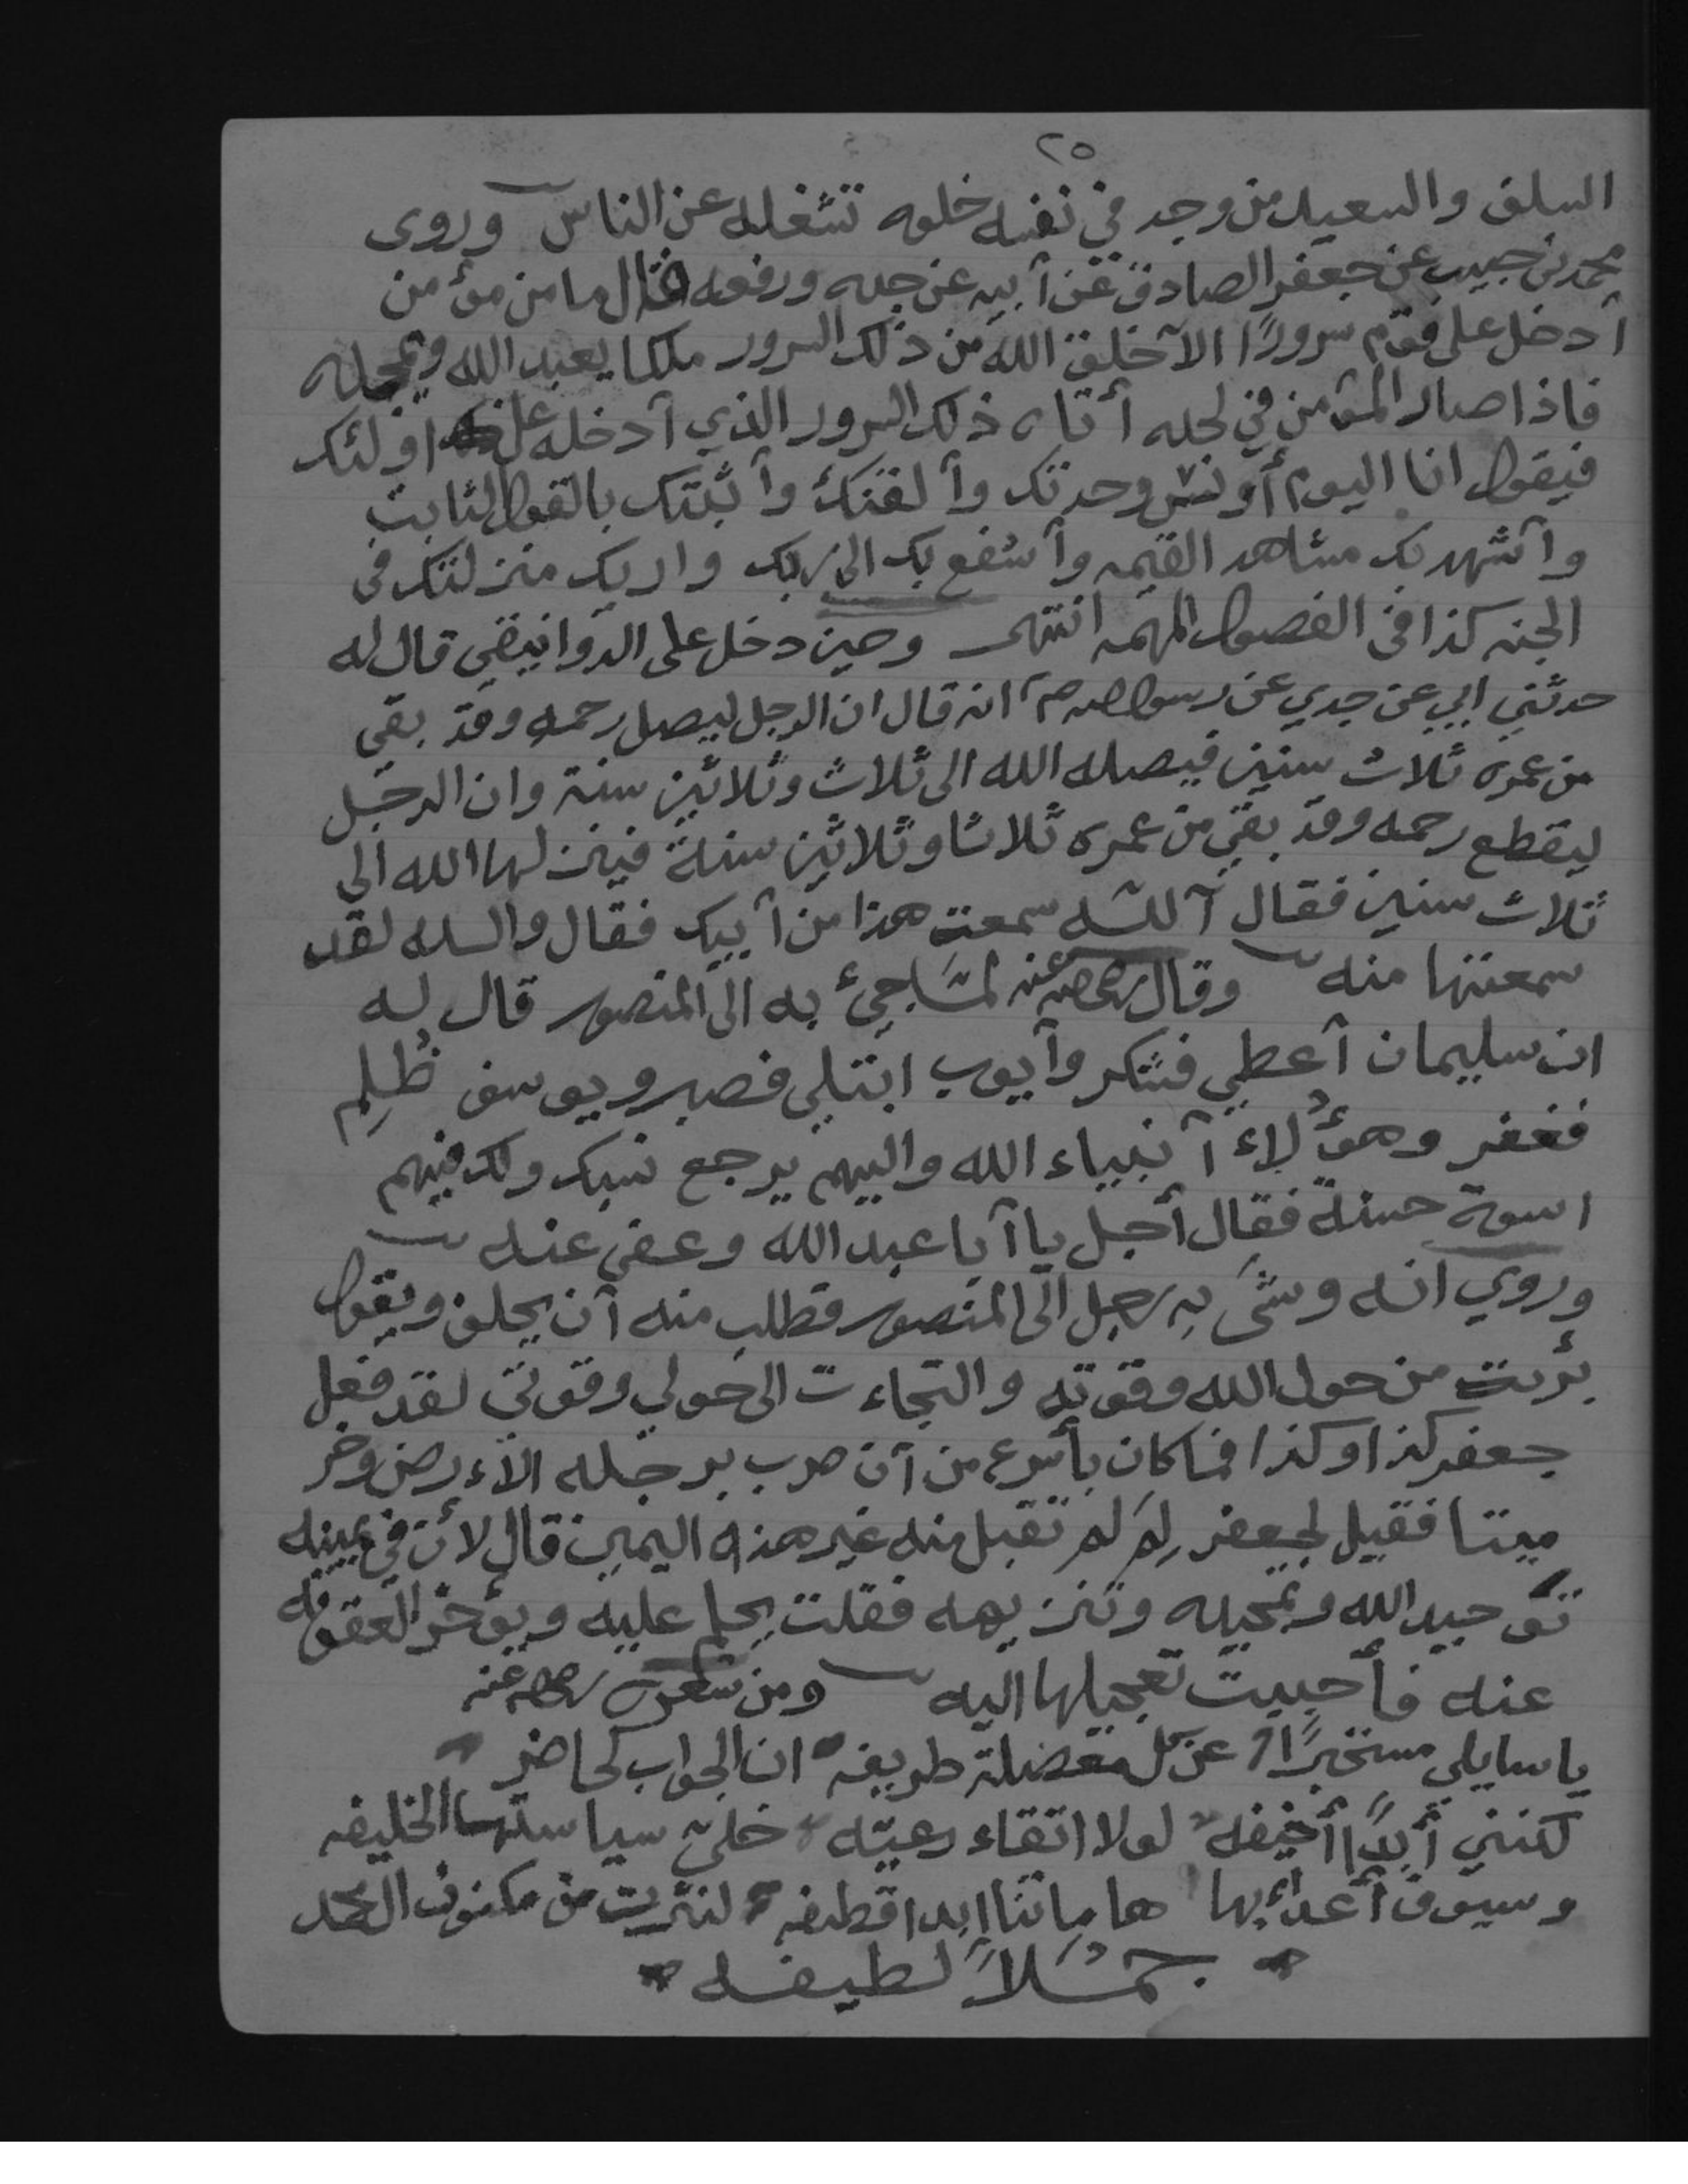 ٢٥
السلف والسعيد من وجد في نفسه خلوه تشغله عن الناس وروى
محمد بن حبيب عن جعفر الصادق عن آبيه عن جده ورفعه قال ما من مؤمن
آدخل على قوم سرورًا الآ خلق الله من ذلك السرور ملكا يعبد الله ويمجده
فاذا صار المؤمن في لحده أتاه ذلك السرور الذي آدخله على اولئك
فيقول انا اليوم أونس وحدتك وآلقنك وآثبتك بالقول الثابت
وآشهد بك مشاهد القيمه وآشفع بك الى ربك واريك منزلتك في
الجنه كذا في الفصول المهمه انتهى وحين دخل على الدوانيقي قال له
حدثني ابي عن جدي عن رسول الله ص انه قال ان الرجل ليصل رحمه وقد بقي
من عمره ثلاث سنين فيصله الله الى ثلاث وثلاثين سنة وان الرجل
ليقطع رحمه وقد بقي من عمره ثلاثا وثلاثين سنة فينزلها الله الى
ثلاث سنين فقال آلله سمعت هذا من آبيك فقال والله لقد
سمعتها منه وقال رضي الله عنه لمّا جيء به الى المنصور قال له
ان سليمان آعطي فشكر وآيوب ابتلي فصبر ويوسف ظُلِم
فغفر وهؤلاء آنبياء الله واليهم يرجع نسبك ولك فيهم
اسوة حسنة فقال أجل يا آبا عبد الله وعفى عنه
وروي انه وشى به رجل الى المنصور فطلب منه آن يحلف ويقول
برئت من حول الله وقوته والتجاءت الى حولي وقوتي لقد فعل
جعفر كذا وكذا فما كان بأسرع من آن ضرب برجله الآءرض وخر
ميتا فقيل لجعفر لِمَ لم تقبل منه غير هذه اليمين قال لأن في يمينه
توحيد الله وتمجيده وتنزيهه فقلت يحلم عليه ويؤخر العقوبه
عنه فأحببت تعجيلها اليه ومن شعره رضي الله عنه
يا سايلي مستخبرًا عن كل معضلة طريفه ان الجواب لحاضر
لكنني أبدًا أخيفه لولا اتقاء رعيّه خلّي سياستها الخليفه
وسيوف أعدائها هاماتنا ابدا قطيفه لنثرت من مكنون
جملاً لطيفه